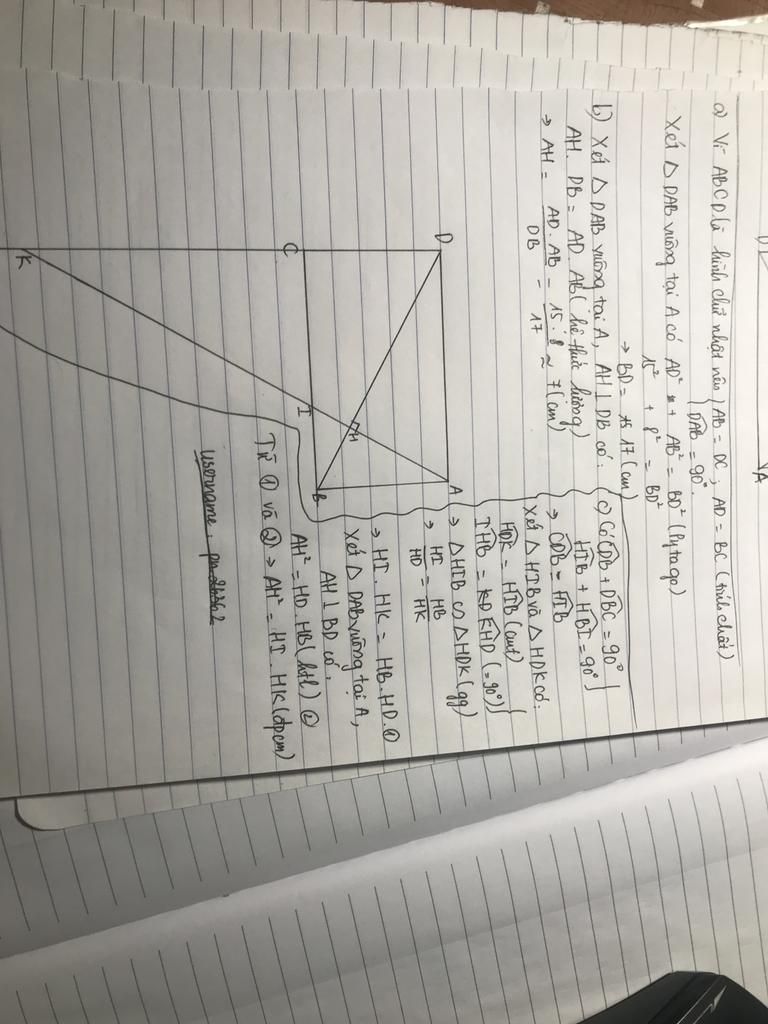 a) Vì ABCD là hình chữ nhật nên { AB = DC ; AD = BC (tính chất)
DAB = 90°.
Xét △ DAB vuông tại A có AD² + AB² = BD² (Pytago)
15² + 8² = BD²
→ BD = 17 (cm)
b) Xét △ DAB vuông tại A, AH ⊥ DB có:
AH. DB = AD. AB (hệ thức lượng)
→ AH = AD. AB / DB = 15. 8 / 17 ≈ 7 (cm)
c) Có CDB + DBC = 90° }
HIB + HBI = 90° }
→ CDB = HIB
Xét △ HIB và △ HDK có:
HDK = HIB (cmt) }
IHB = KHD (= 90°) }
→ △HIB ∽ △HDK (gg)
→ HI / HD = HB / HK
→ HI. HK = HB. HD. ①
Xét △ DAB vuông tại A,
AH ⊥ BD có.
AH² = HD. HB (htl) ②
Từ ① và ② → AH² = HI. HK (đpcm)
D
A
C
B
H
I
K
D
A
username: